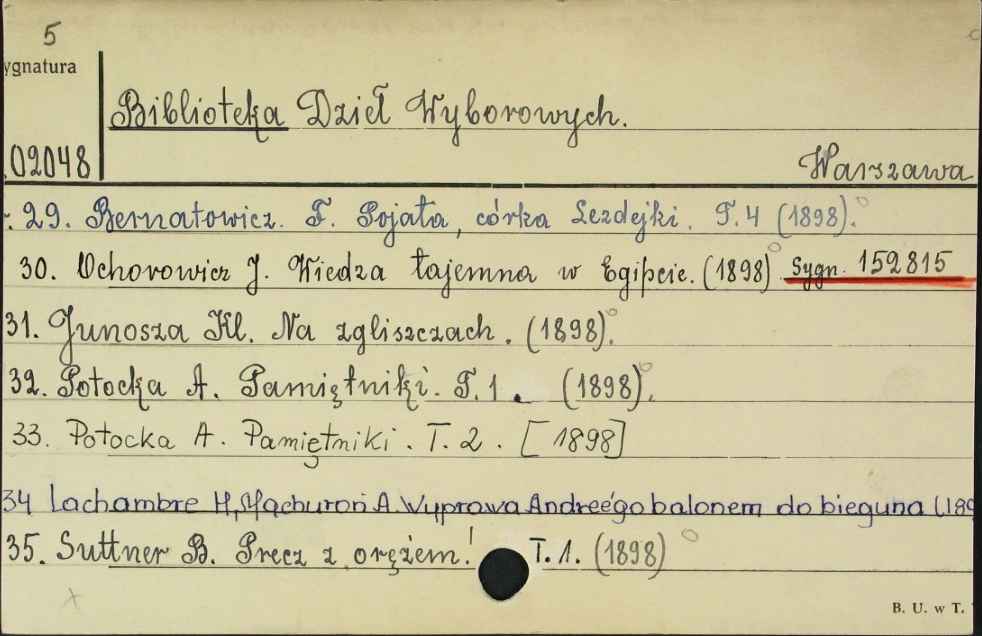 5
ygnatura
Biblioteka Dzieł Wyborowych.
02048
Warszawa
29. Bernatowicz. F. Pojata, córka Lezdejki. T.4 (1898).
30. Ochorowicz J. Wiedza tajemna w Egipcie. (1898) Sygn. 159815
31. Junosza Kl. Na zgliszczach. (1898).
32. Potocka A. Pamiętniki. T.1. (1898).
33. Potocka A. Pamiętniki. T.2. [1898]
34 Lachambre H, Machuron A. Wyprawa Andreégo balonem do bieguna (189
35. Suttner B. Precz z orężem! T.1. (1898)
x
B. U. w T.